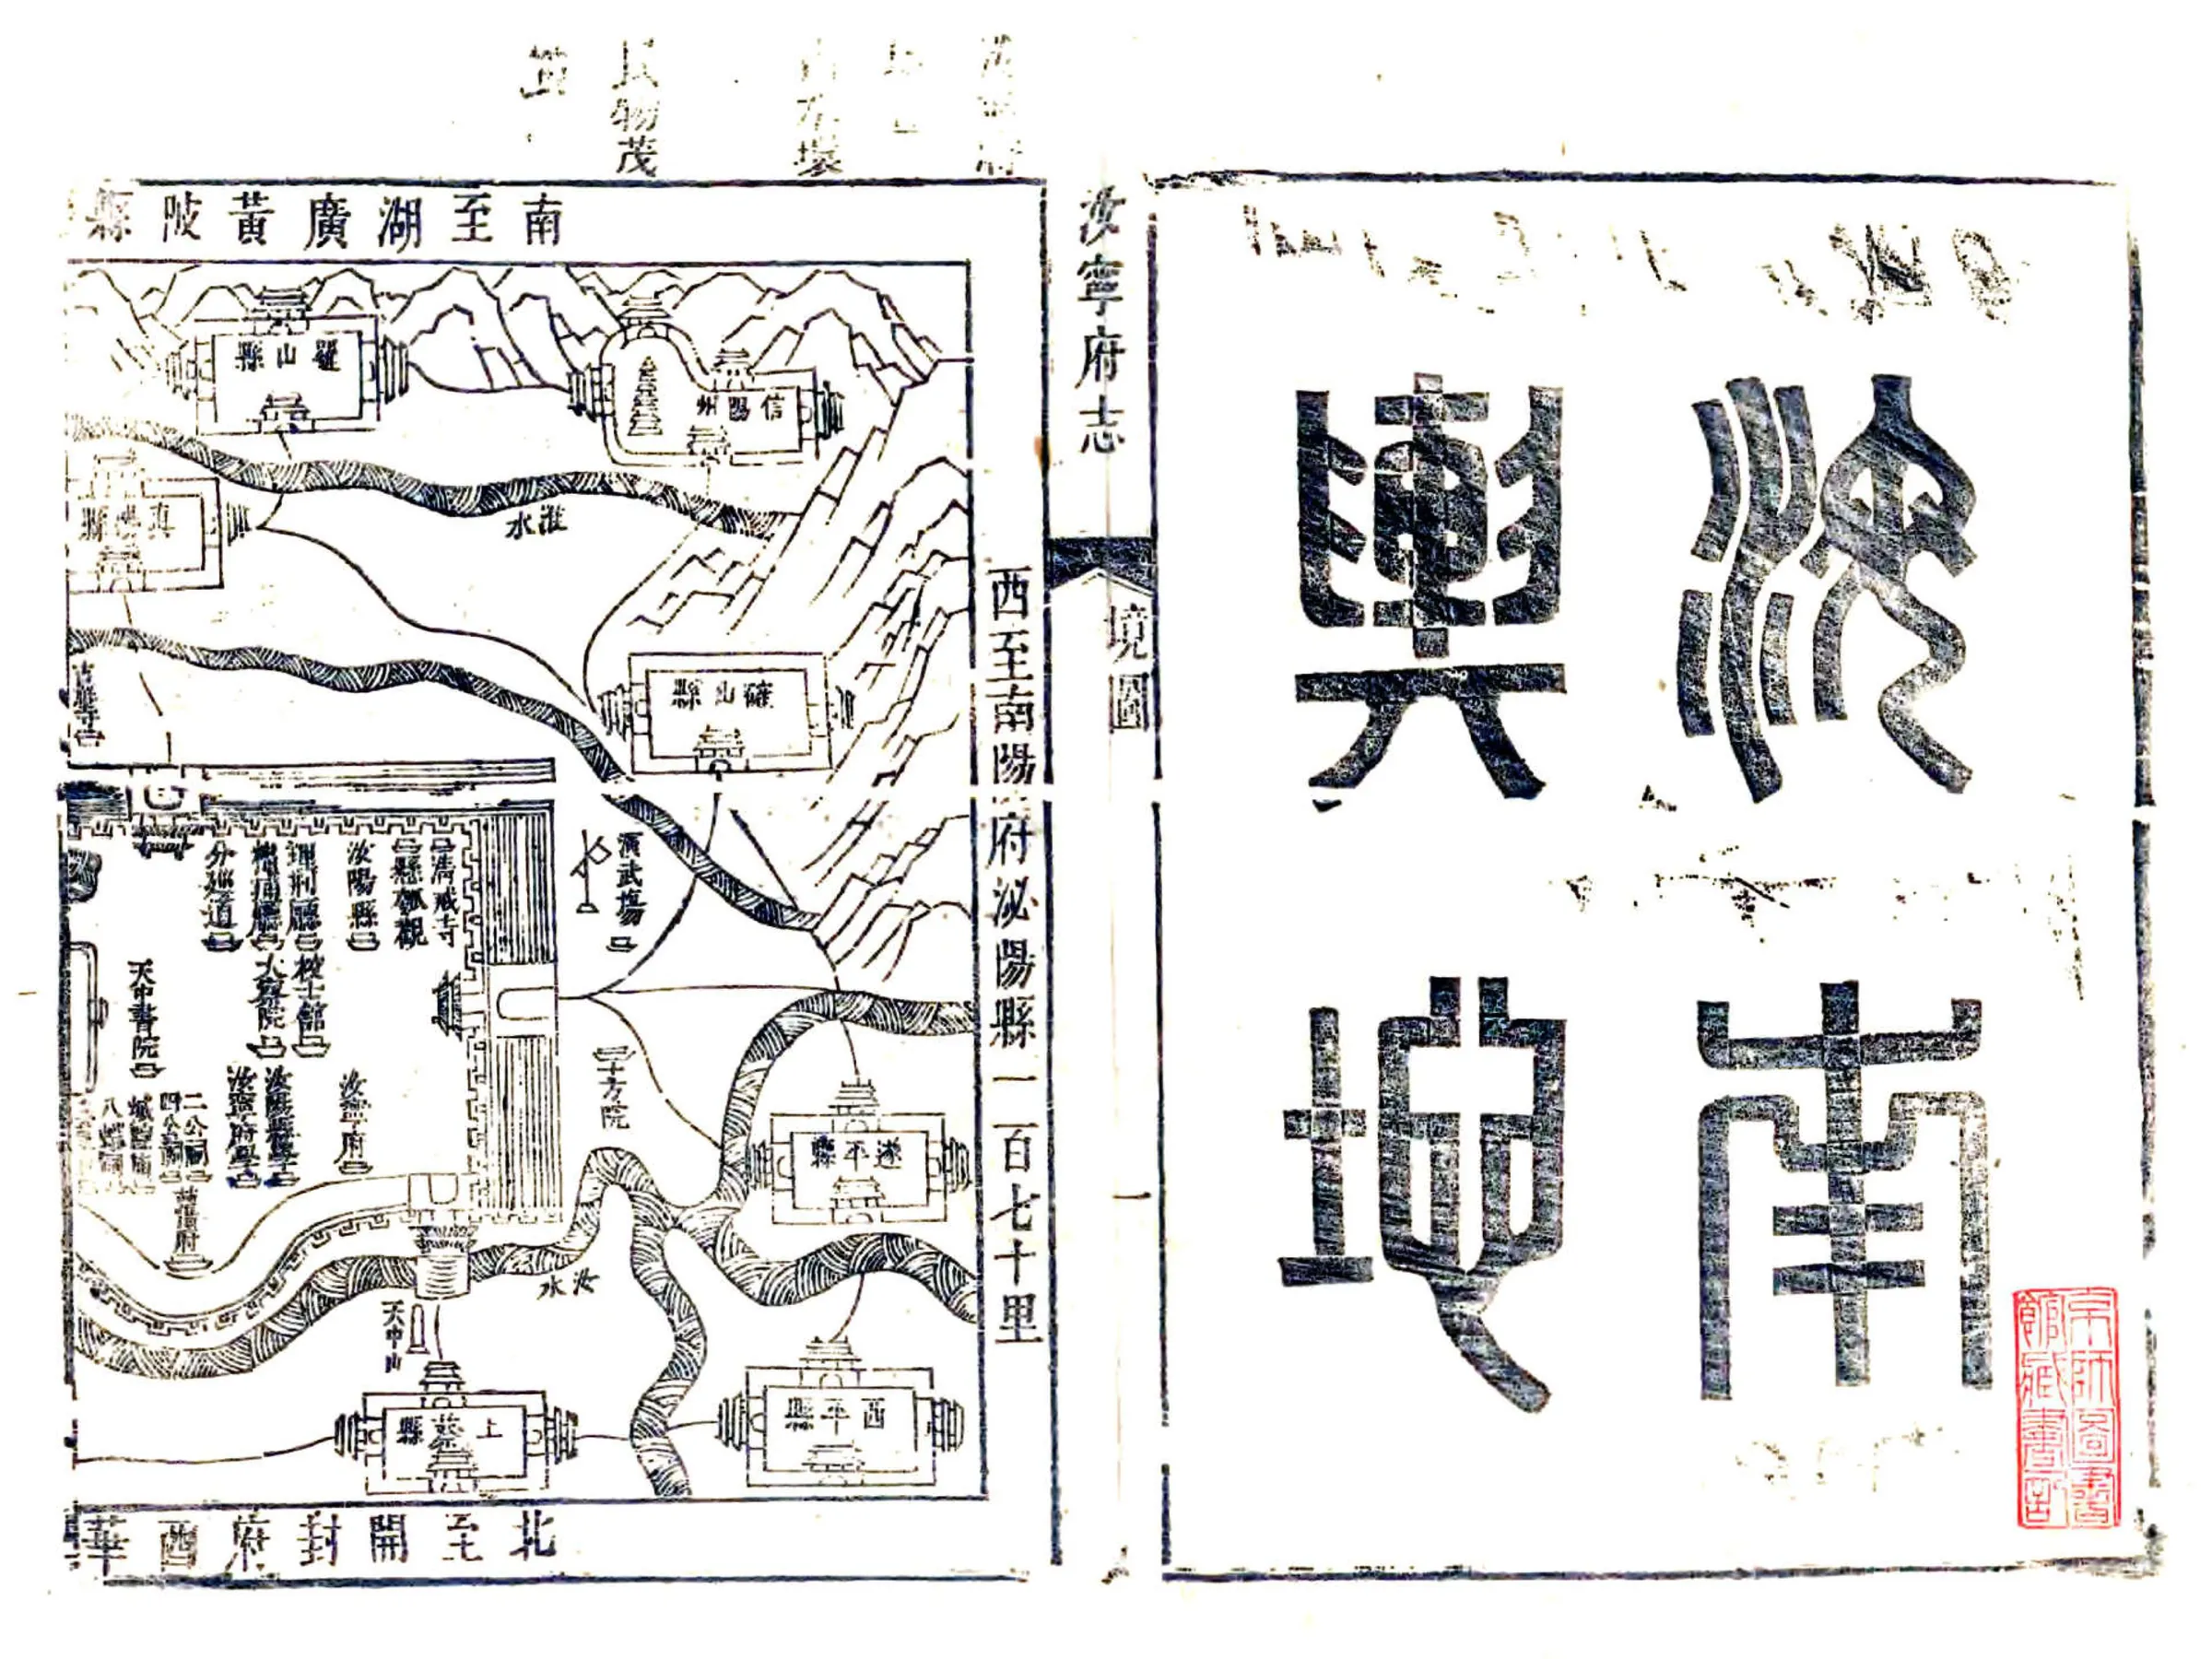 汝南
輿地
京師圖書
館藏書記
汝寧府志
境圖
一
民物茂
南至湖廣黃陂縣
西至南陽府泌陽縣一百七十里
北至開封府西華
信陽州
羅山縣
淮水
真陽縣
確山縣
演武場
清戒寺
懸瓠觀
汝陽縣
理刑廳
分巡道
校士館
大察院
天中書院
汝寧府
汝陽縣學
汝寧府學
二公祠
四公祠
城隍廟
八蜡祠
十方院
遂平縣
汝水
天中山
上蔡縣
西平縣